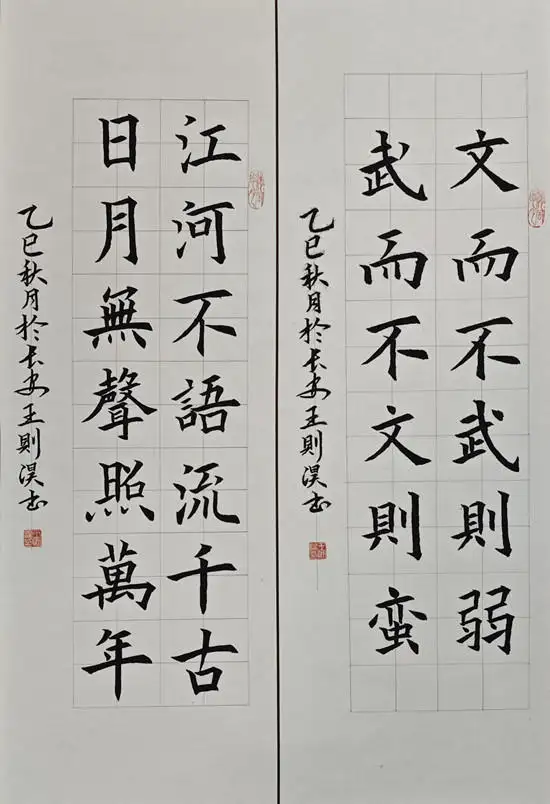 文而不武則弱
武而不文則蛮
乙巳秋月於长安王則淏书
江河不語流千古
日月無聲照萬年
乙巳秋月於长安王則淏书